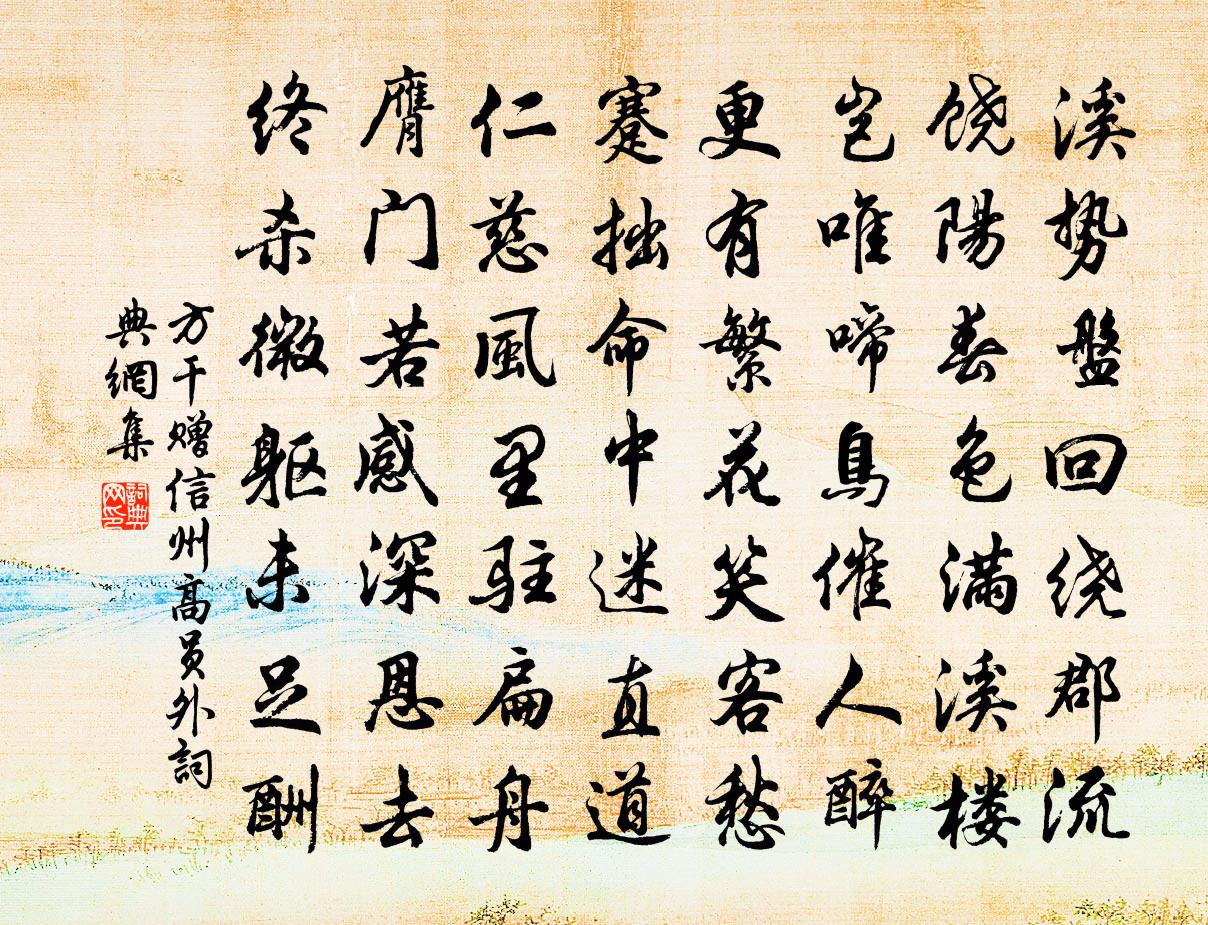 溪势盤回绕郡流
饶陽春色满溪楼
岂唯啼鳥催人醉
更有繁花笑客愁
蹇拙命中迷直道
仁慈風里駐扁舟
膺门若感深恩去
终杀微躯未足酬
方干赠信州高員外詞
典網集
詞典
网印